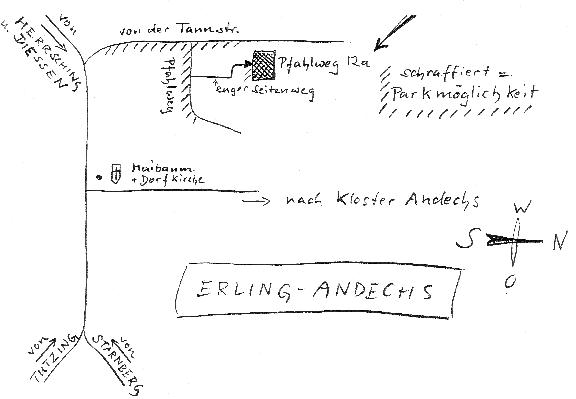 von
HERRSCHING
u. DIESSEN
von der Tannstr.
Pfahlweg
Pfahlweg 12a
enger Seitenweg
schraffiert =
Parkmöglichkeit
Maibaum
+ Dorfkirche
→ nach Kloster Andechs
W
S N
O
ERLING-ANDECHS
von
TUTZING
von
STARNBERG